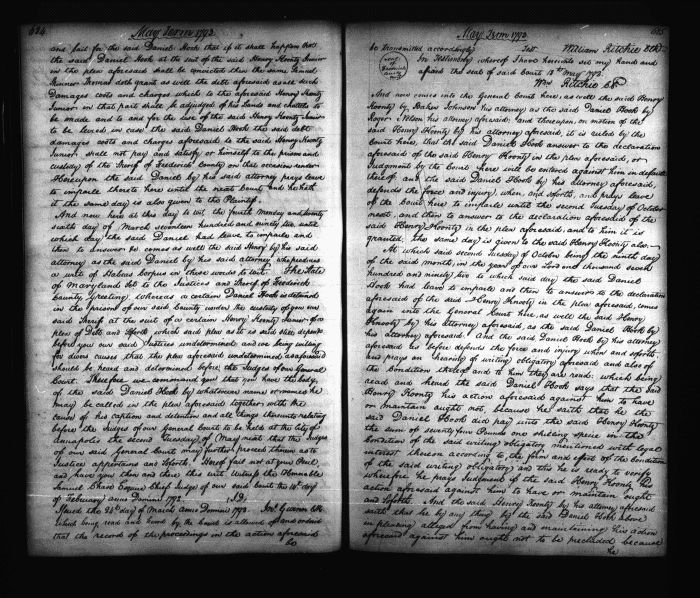 624
May Term 1792
and fail for the said Daniel Hook that if it shall happen that
the said Daniel Hook at the suit of the said Henry Koontz Junior
in the plea aforesaid shall be convicted then the same
doth grant as well the debt aforesaid as all such
Damages, costs and charges which to the aforesaid Henry Koontz
Junior in that part shall be adjudged of his Lands and chattels to
be made and to and for the use of the said Henry Koontz Junior
to be levied in case the said Daniel Hook the said debt
damages costs and charges aforesaid to the said Henry Koontz
Junior shall not pay and satisfy or himself to the prison and
custody of the Sheriff of Frederick County on that occasion render
Whereupon the said Daniel by his said attorney prays leave
to imparle thereto here until the next Court and he hath
it the same day is also given to the Plaintif.
And now here at this day to wit the fourth Monday and twenty
sixth day of March seventeen hundred and ninety two until
which day the said Daniel had leave to imparle and
then to answer &c comes as well the said Henry by his said
attorney as the said Daniel by his said attorney who produces
a writ of Habeas Corpus in these words to wit. The State
of Maryland to wit to the Justices and Sheriff of Frederick
County, Greeting, whereas a certain Daniel Hook is detained
in the prison of our said County under the custody of you our
said Sheriff at the suit of a certain Henry Koontz Junior of a
plea of Debt and soforth which said plea as it is said there depends
before you our said Justices undetermined and we being willing
for divers causes that the plea aforesaid undetermined as aforesaid
should be heard and determined before the Judges of our General
Court. Therefore we command you that you have the body,
of the said Daniel Hook by whatsoever names or names he
may be called in the plea aforesaid together with the
cause of his caption and detention and all things thereunto relating
before the Judges of our General Court to be held at the City of
Annapolis the second Tuesday of May next that the Judges
of our said General Court may further proceed thereon as to
Justice appertains and soforth. Hereof fail not at your Peril
and have you then and there this writ Witness the Honorable
Samuel Chase Esquire Chief Judge of our said Court the 14th day
of February anno Domini 1792.
Issued the 22d day of March anno Domini 1792. Jno Gwinn Clk
Which being read and heard by the Court is allowed of and ordered
that the record of the proceedings in the action aforesaid
be
May Term 1792
625
be transmitted accordingly. Test. William Ritchie Clk
In Testimony whereof I have hereunto set my hand and
affixed the seal of said Court 12th May 1792.
Wm Ritchie Clk
seal of Frederick County
And now comes into the General Court here as well the said Henry
Koontz by Baker Johnson his attorney as the said Daniel Hook by
Roger Nelson his attorney aforesaid, and thereupon on motion of the
said Henry Koontz by his attorney aforesaid, it is ruled by the
Court here, that the said Daniel Hook answer to the declaration
aforesaid of the said Henry Koontz in the plea aforesaid, or
Judgment by the Court here will be entered against him in default
thereof, and the said Daniel Hook by his attorney aforesaid,
defends the force and injury, when and soforth, and prays leave
of the Court here to imparle until the second Tuesday of October
next, and then to answer to the declaration aforesaid of the
said Henry Koontz in the plea aforesaid; and to him it is
granted; the same day is given to the said Henry Koontz also.
At which said second Tuesday of October being the ninth day
of the said month, in the year of our Lord one thousand seven
hundred and ninety two to which said day the said Daniel
Hook had leave to imparle and then to answer to the declaration
aforesaid of the said Henry Koontz in the plea aforesaid, comes
again into the General Court here, as well the said Henry
Koontz by his attorney aforesaid, as the said Daniel Hook by
his attorney aforesaid. And the said Daniel Hook by his attorney
aforesaid as before defends the force and injury when and soforth
and prays an hearing of writing obligatory aforesaid and also of
the Condition thereof and to him they are read: which being
read and heard the said Daniel Hook says that the said
Henry Koontz his action aforesaid against him to have
or maintain ought not, because he saith that he the
said Daniel Hook did pay unto the said Henry Koontz
the sum of seventy four Pounds one shilling specie in the
Condition of the said writing obligatory mentioned with legal
interest thereon according to the form and effect of the Condition
of the said writing obligatory and this he is ready to verify
wherefore he prays Judgment if the said Henry Koontz his
action aforesaid against him to have or maintain ought
and soforth.
And the said Henry Koontz by his attorney aforesaid
saith that he by any thing by the said Daniel Hook above
in pleading alleged from having and maintaining his action
aforesaid against him ought not to be precluded because
he